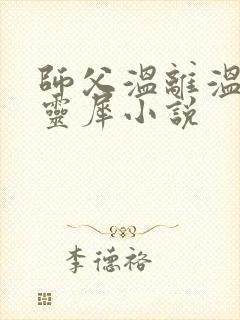 師父溫離溫
靈犀小說
李德裕